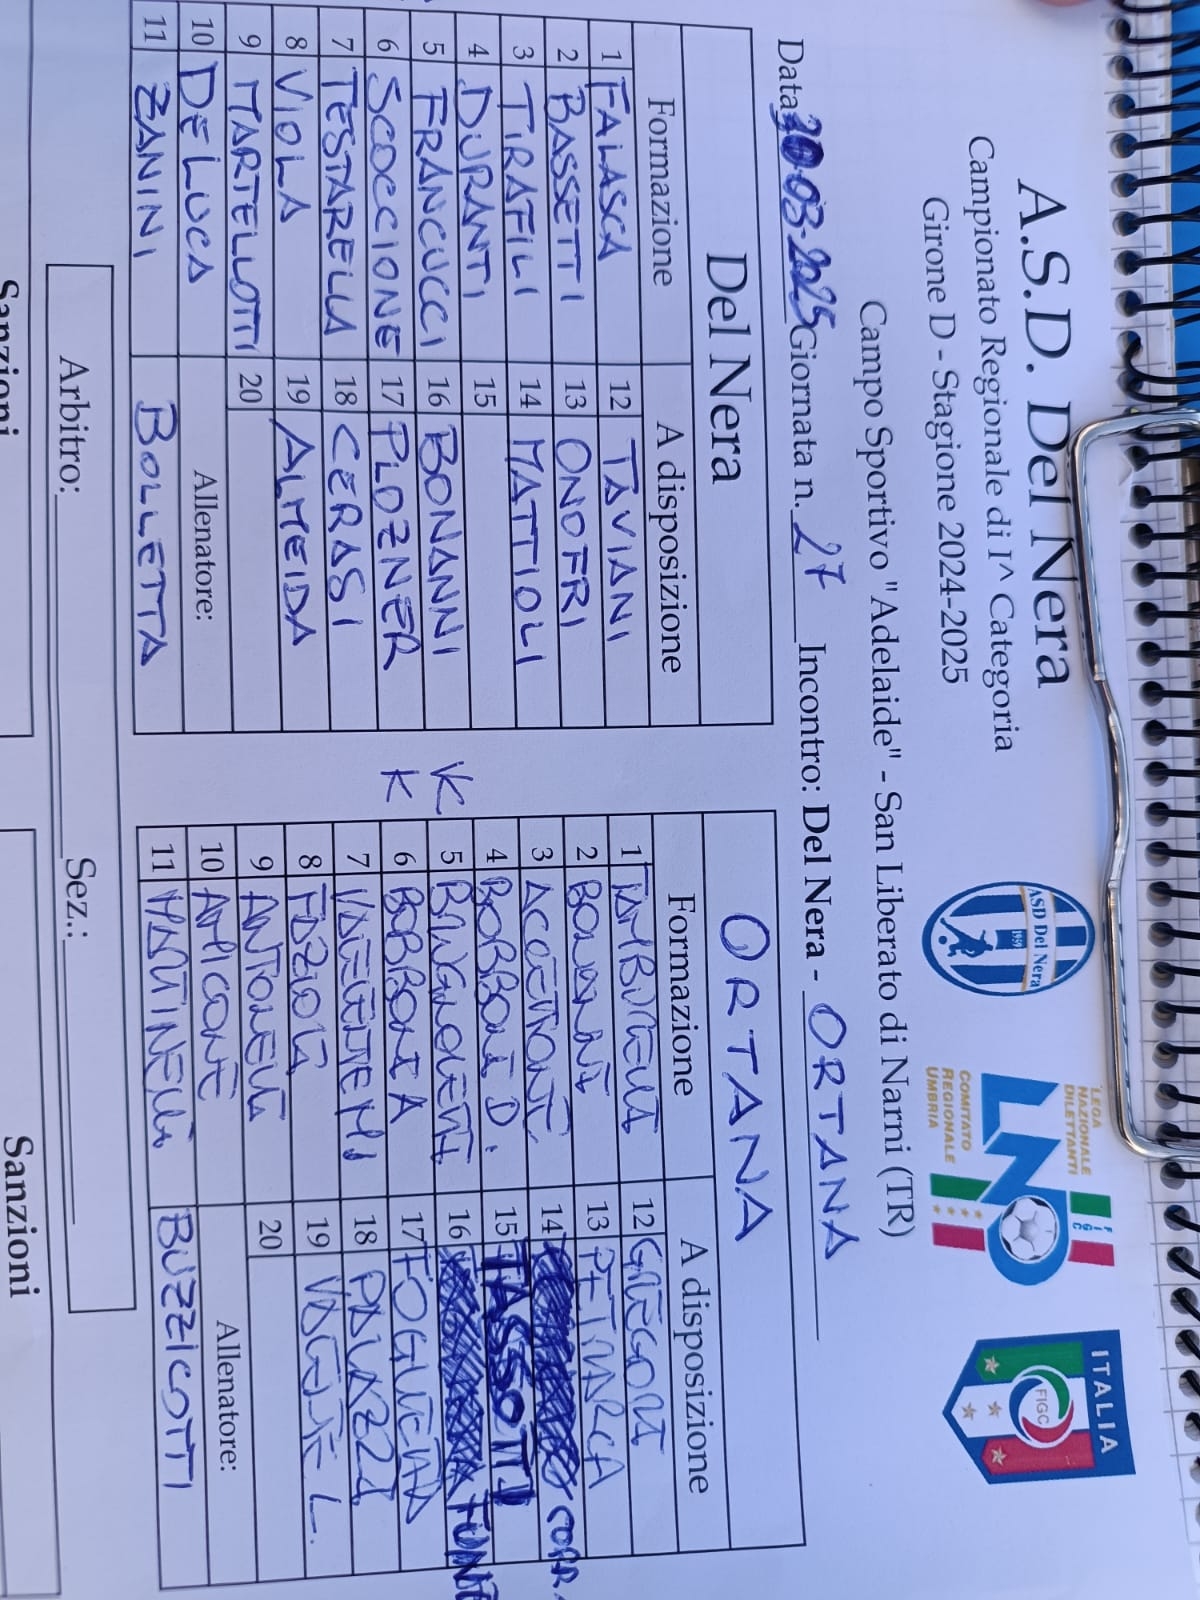 A.S.D. Del Nera
Campionato Regionale di I^ Categoria
Girone D - Stagione 2024-2025
Campo Sportivo "Adelaide" - San Liberato di Narni (TR)
ASD Del Nera
1959
LEGA
NAZIONALE
DILETTANTI
FIGC
LND
COMITATO
REGIONALE
UMBRIA
ITALIA
FIGC
Data 30-03-2025 Giornata n. 27 Incontro: Del Nera - ORTANA
Del Nera
Formazione A disposizione
1 FALASCA 12 TAVIANI
2 BASSETTI 13 ONOFRI
3 TIRAFILI 14 MATTIOLI
4 DURANTI 15
5 FRANCUCCI 16 BONANNI
6 SCOCCIONE 17 PLOZNER
7 TESTARELLA 18 CERASI
8 VIOLA 19 ALMEIDA
9 MARTELLOTTI 20
10 DE LUCA Allenatore:
11 ZANINI BOLLETTA
K
K
ORTANA
Formazione A disposizione
1 TAMBURELLI 12 GREGORI
2 BONANNI 13 PETTIARCA
3 ACCETTONE 14 CORR.
4 BOBBONI D. 15 TASSOTTI
5 16
6 BOBBONI A 17 FOGLIETTA
7 18 PALAZZI
8 FAZIOLI 19 L.
9 ANTONELLI 20
10 AMICONE Allenatore:
11 MARTINELLI BUZZICOTTI
Arbitro: Sez.:
Sanzioni Sanzioni